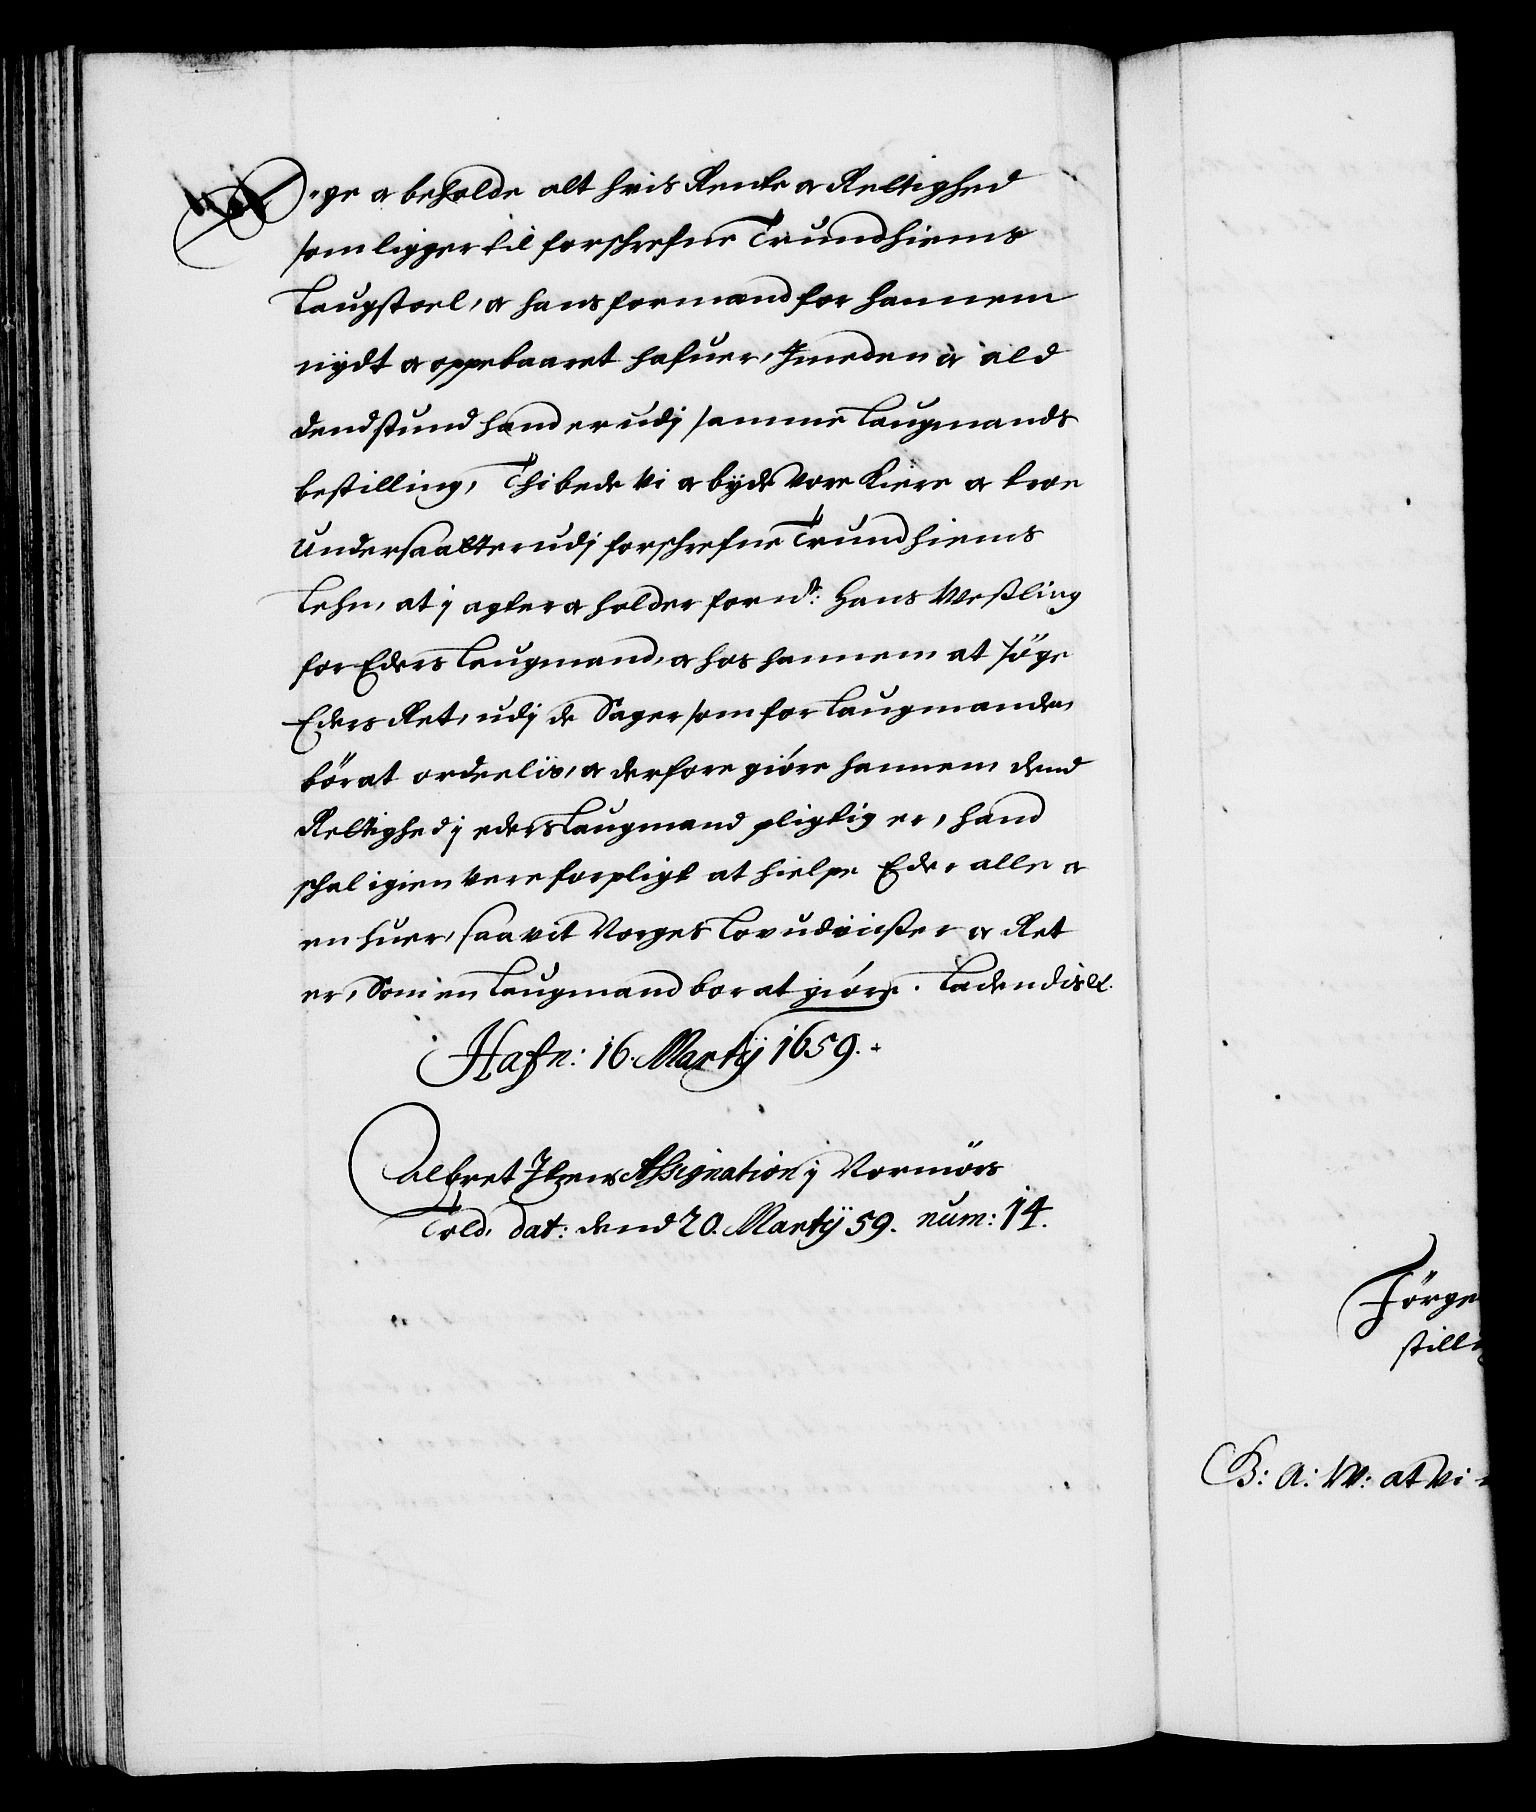 -ge oc beholde alt hvis Rente oc Rettighed
som ligger til forschrefne Trundhiems
Laugstoel, oc hans formand for hannem
nydt oc oppebaaret hafuer, Imeden oc ald
dend stund hand er udj samme Laugmands
bestilling, Thi bede Vi oc byde Vore Kiere oc troe
Undersaatter udj forschrefne Trundhiems
Lehn, at j agter oc holder fornd: Hans Weszling
for Eders Laugmand, oc hos hannem at söge
Eders Ret, udj de Sager som for Laugmanden
bör at ordeelis, oc derfore giöre hannem dend
Rettighed j eders Laugmand pligtig er, hand
schal igien vere forpligt at hielpe Eder alle oc
en huer, saa vit Norges Lov udviszer oc Ret
er, Som en Laugmand bor at giöre. Ladendis etc.
Hafn: 16. Martij 1659.
Albret Itzens Assignation j Normörs
Told, dat: dend 20. Martij 59. num: 14.
Jörge
still
B: A: W: at Vi